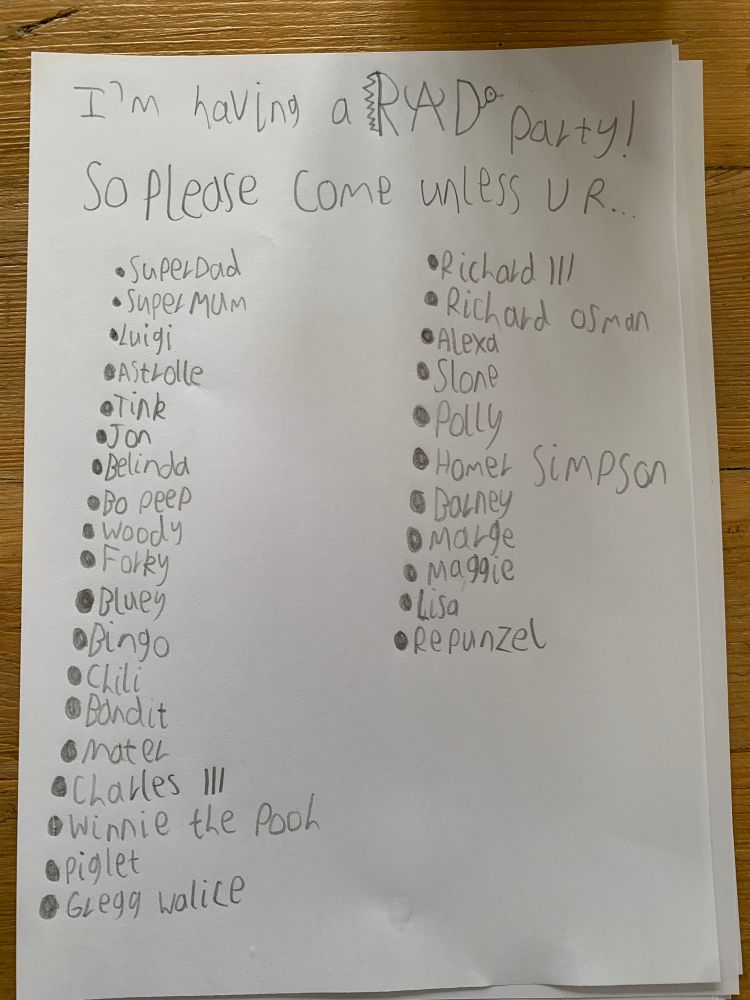 I'm having a RAD party!
So please come unless U R...
• SuperDad
• Super Mum
• Luigi
• Astrolle
• Tink
• Jon
• Belinda
• Bo peep
• Woody
• Forky
• Bluey
• Bingo
• Chili
• Bandit
• Mater
• Charles III
• Winnie the Pooh
• Piglet
• Gregg Walice
• Richard III
• Richard Osman
• Alexa
• Slone
• Polly
• Homer Simpson
• Barney
• Marge
• Maggie
• Lisa
• Repunzel